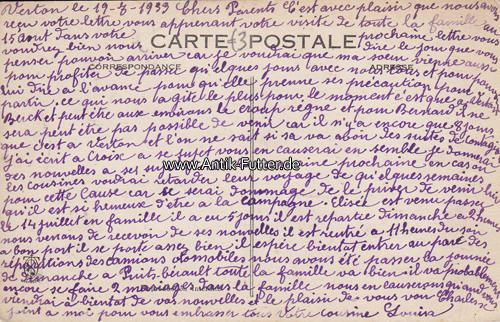 Verton le 19-7-1933 Chers Parents C'est avec plaisir que nous avons
reçu votre lettre vous apprenant votre visite de toute la famille au
15 Aout dans votre prochaine lettre vous
voudrez bien nous dire le jour que vous
CARTE POSTALE
penser pouvoir arriver car je voudrai que ma soeur vienne aussi
CORRESPONDANCE
ADRESSE
pour profiter de passer quelques jours avec nous tous et pour pouvoir
lui dire a l'avance pour qu'elle prenne ses précaution pour
partir, ce qui nous gate le plus pour le moment c'est que a Verton
Berck et peut être aux environs le croup règne et pour Bernard il ne
sera peut être pas possible de venir car il n'y a encore que 8 jours
que c'est a Verton et l'on ne sait si sa va avoir des suites
j'ai écrit a Croix a se sujet vous en causerai en semble je donnerai
des nouvelles a ses sujet semaine prochaine en cas ou
www.Antik-Futten.de
ces cousines voudrai retarder leur voyage de quelques semaines
pour cette cause car se serai dommage de le priser de venir lui
qu'il est si heureuse d'être a la campagne. Elisée est venue passer
le 14 juillet en famille il a eu 5 jours il est repartie dimanche a 2 heures
nous venons de recevoir de ses nouvelles il est rentré a 11 heures du soir
a bon port il se porte assez bien il espère bientot entrer au parc des
réparations des camions otomobiles nous avons été passer la journée
de dimanche a Puits-bérault toute la famille va bien il va probablement
encore se faire 2 mariages dans la famille nous en causerons quand vous
viendrai a bientot de vos nouvelles et le plaisir de vous voir Charles
joint a moi pour vous embrasser tous votre cousine Louisa